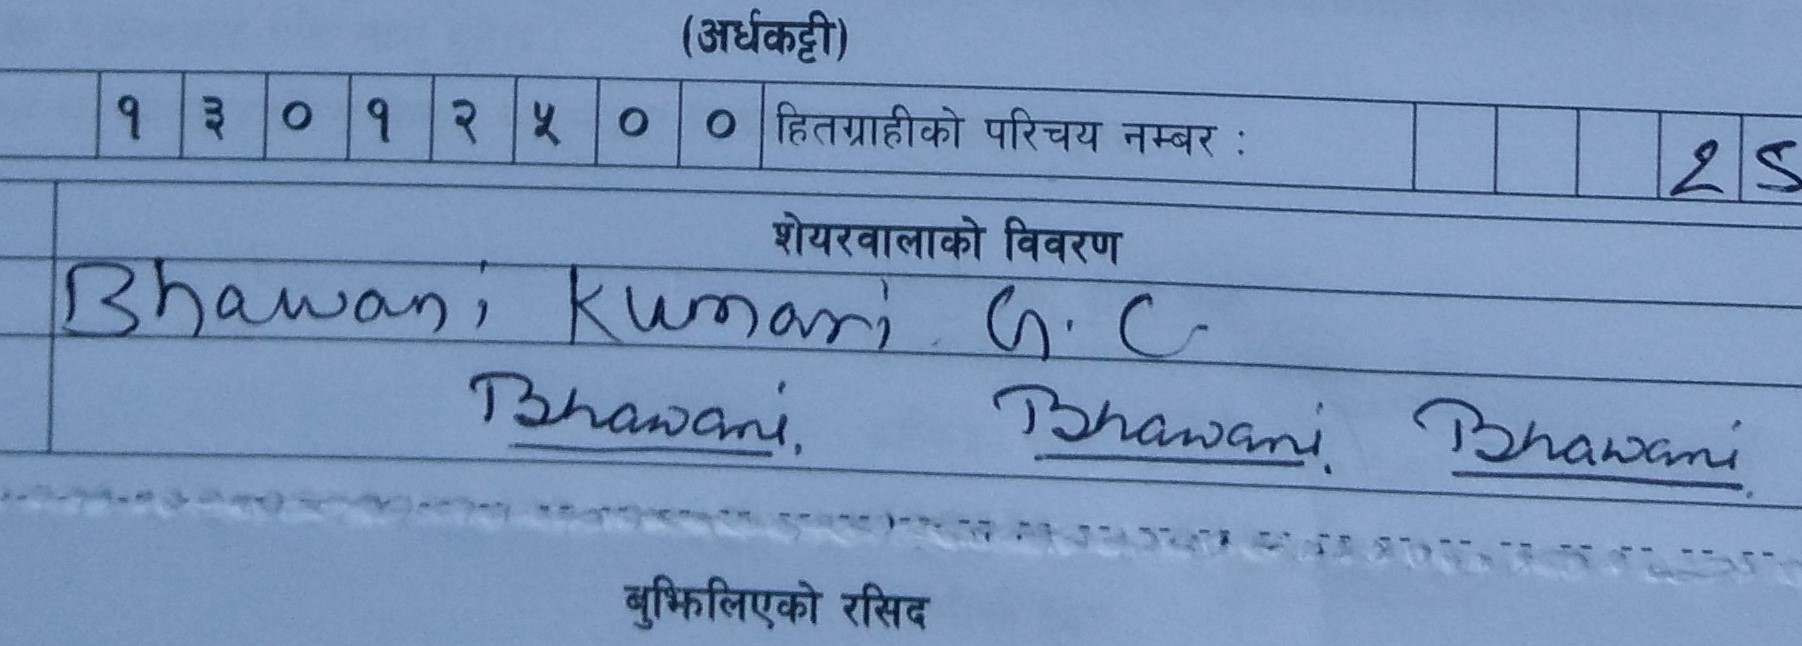 (अर्धकट्टी)
१ ३ ० १ २ ५ ० ० हितग्राहीको परिचय नम्बर : 2 5
शेयरवालाको विवरण
Bhawani Kumari G. C
Bhawani. Bhawani. Bhawani.
बुझिलिएको रसिद